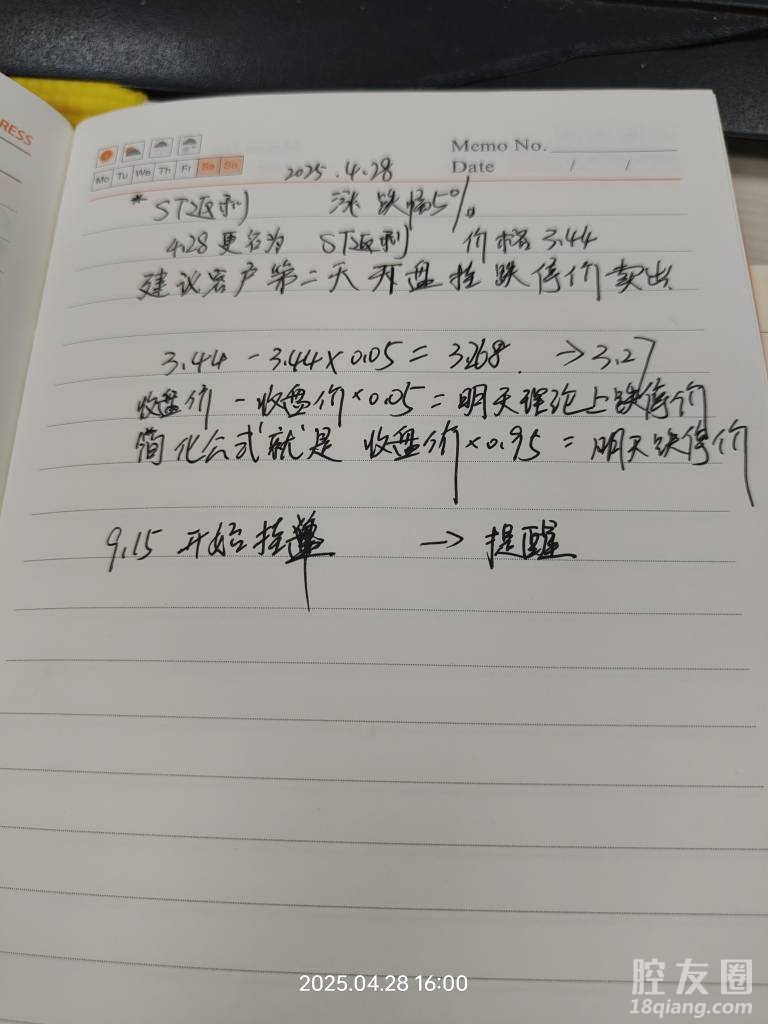 RESS
Memo No.
Mo Tu We Th Fr Sa Su
Date / /
2025.4.28
*ST返利 涨跌幅5%
4.28更名为 ST返利 价格3.44
建议客户第二天开盘挂跌停价卖出
3.44 - 3.44×0.05 = 3.268 → 3.27
收盘价 - 收盘价×0.05 = 明天理论上跌停价
简化公式就是 收盘价×0.95 = 明天跌停价
9.15 开始挂单 → 提醒
2025.04.28 16:00
腔友圈
18qiang.com